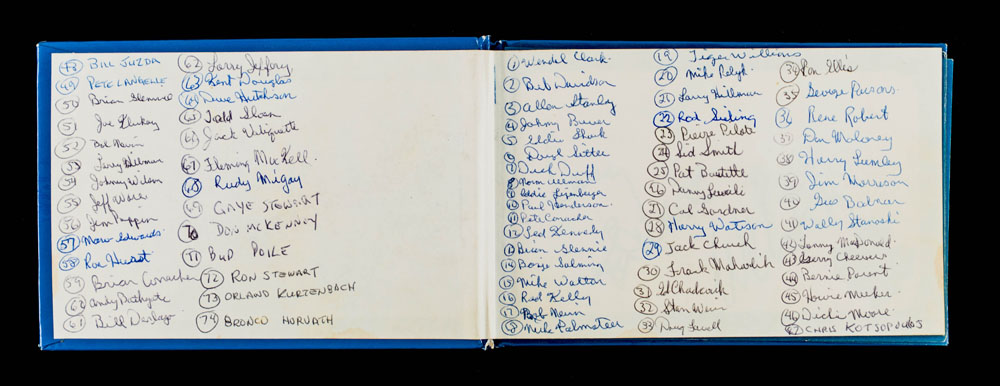 48 BILL JUZDA
49 PETE LANGELLE
50 Brian Glennie
51 Joe Klukay
52 Bob Nevin
53 Larry Hillman
54 Johnny Wilson
55 Jeff Ware
56 Jim Pappin
57 Marv Edwards
58 Ron Hurst
59 Brian Conacher
60 Andy Bathgate
61 Bill Derlago
62 Larry Jeffrey
63 Kent Douglas
64 Dave Hutchison
65 Todd Sloan
66 Jack Valiquette
67 Fleming Mackell.
68 Rudy Migay
69 GAYE STEWART
70 DON MCKENNY
71 BUD POILE
72 RON STEWART
73 ORLAND KURTENBACH
74 BRONCO HORVATH
1 Wendel Clark
2 Bob Davidson
3 Allan Stanley
4 Johnny Bower
5 Eddie Shack
6 Daryl Sitter
7 Dick Duff
8 Norm Ullman
9 Eddie
10 Paul Henderson
11 Pete Conacher
12 Ted Kennedy
13 Brian Glennie
14 Borje Salming
15 Mike Walton
16 Red Kelly
17 Bob Nevin
18 Mike Palmateer
19 Tiger Williams
20 Mike
21 Larry Hillman
22 Rod Seiling
23 Pierre Pilote
24 Sid Smith
25 Pat Boutette
26 Danny Lewicki
27 Cal Gardner
28 Harry Watson
29 Jack Church
30 Frank Mahovlich
31 Ed Chadwick
32 Stan Weir
33 Doug
34 Ron Ellis
35 George Parsons
36 Rene Robert
37 Dan Maloney
38 Harry Lumley
39 Jim Morrison
40 Gus Bodnar
41 Wally Stanoski
42 Lanny McDonald
43 Gerry Cheevers
44 Bernie Parent
45 Howie Meeker
46 Dickie Moore
47 CHRIS KOTSOPOULOS